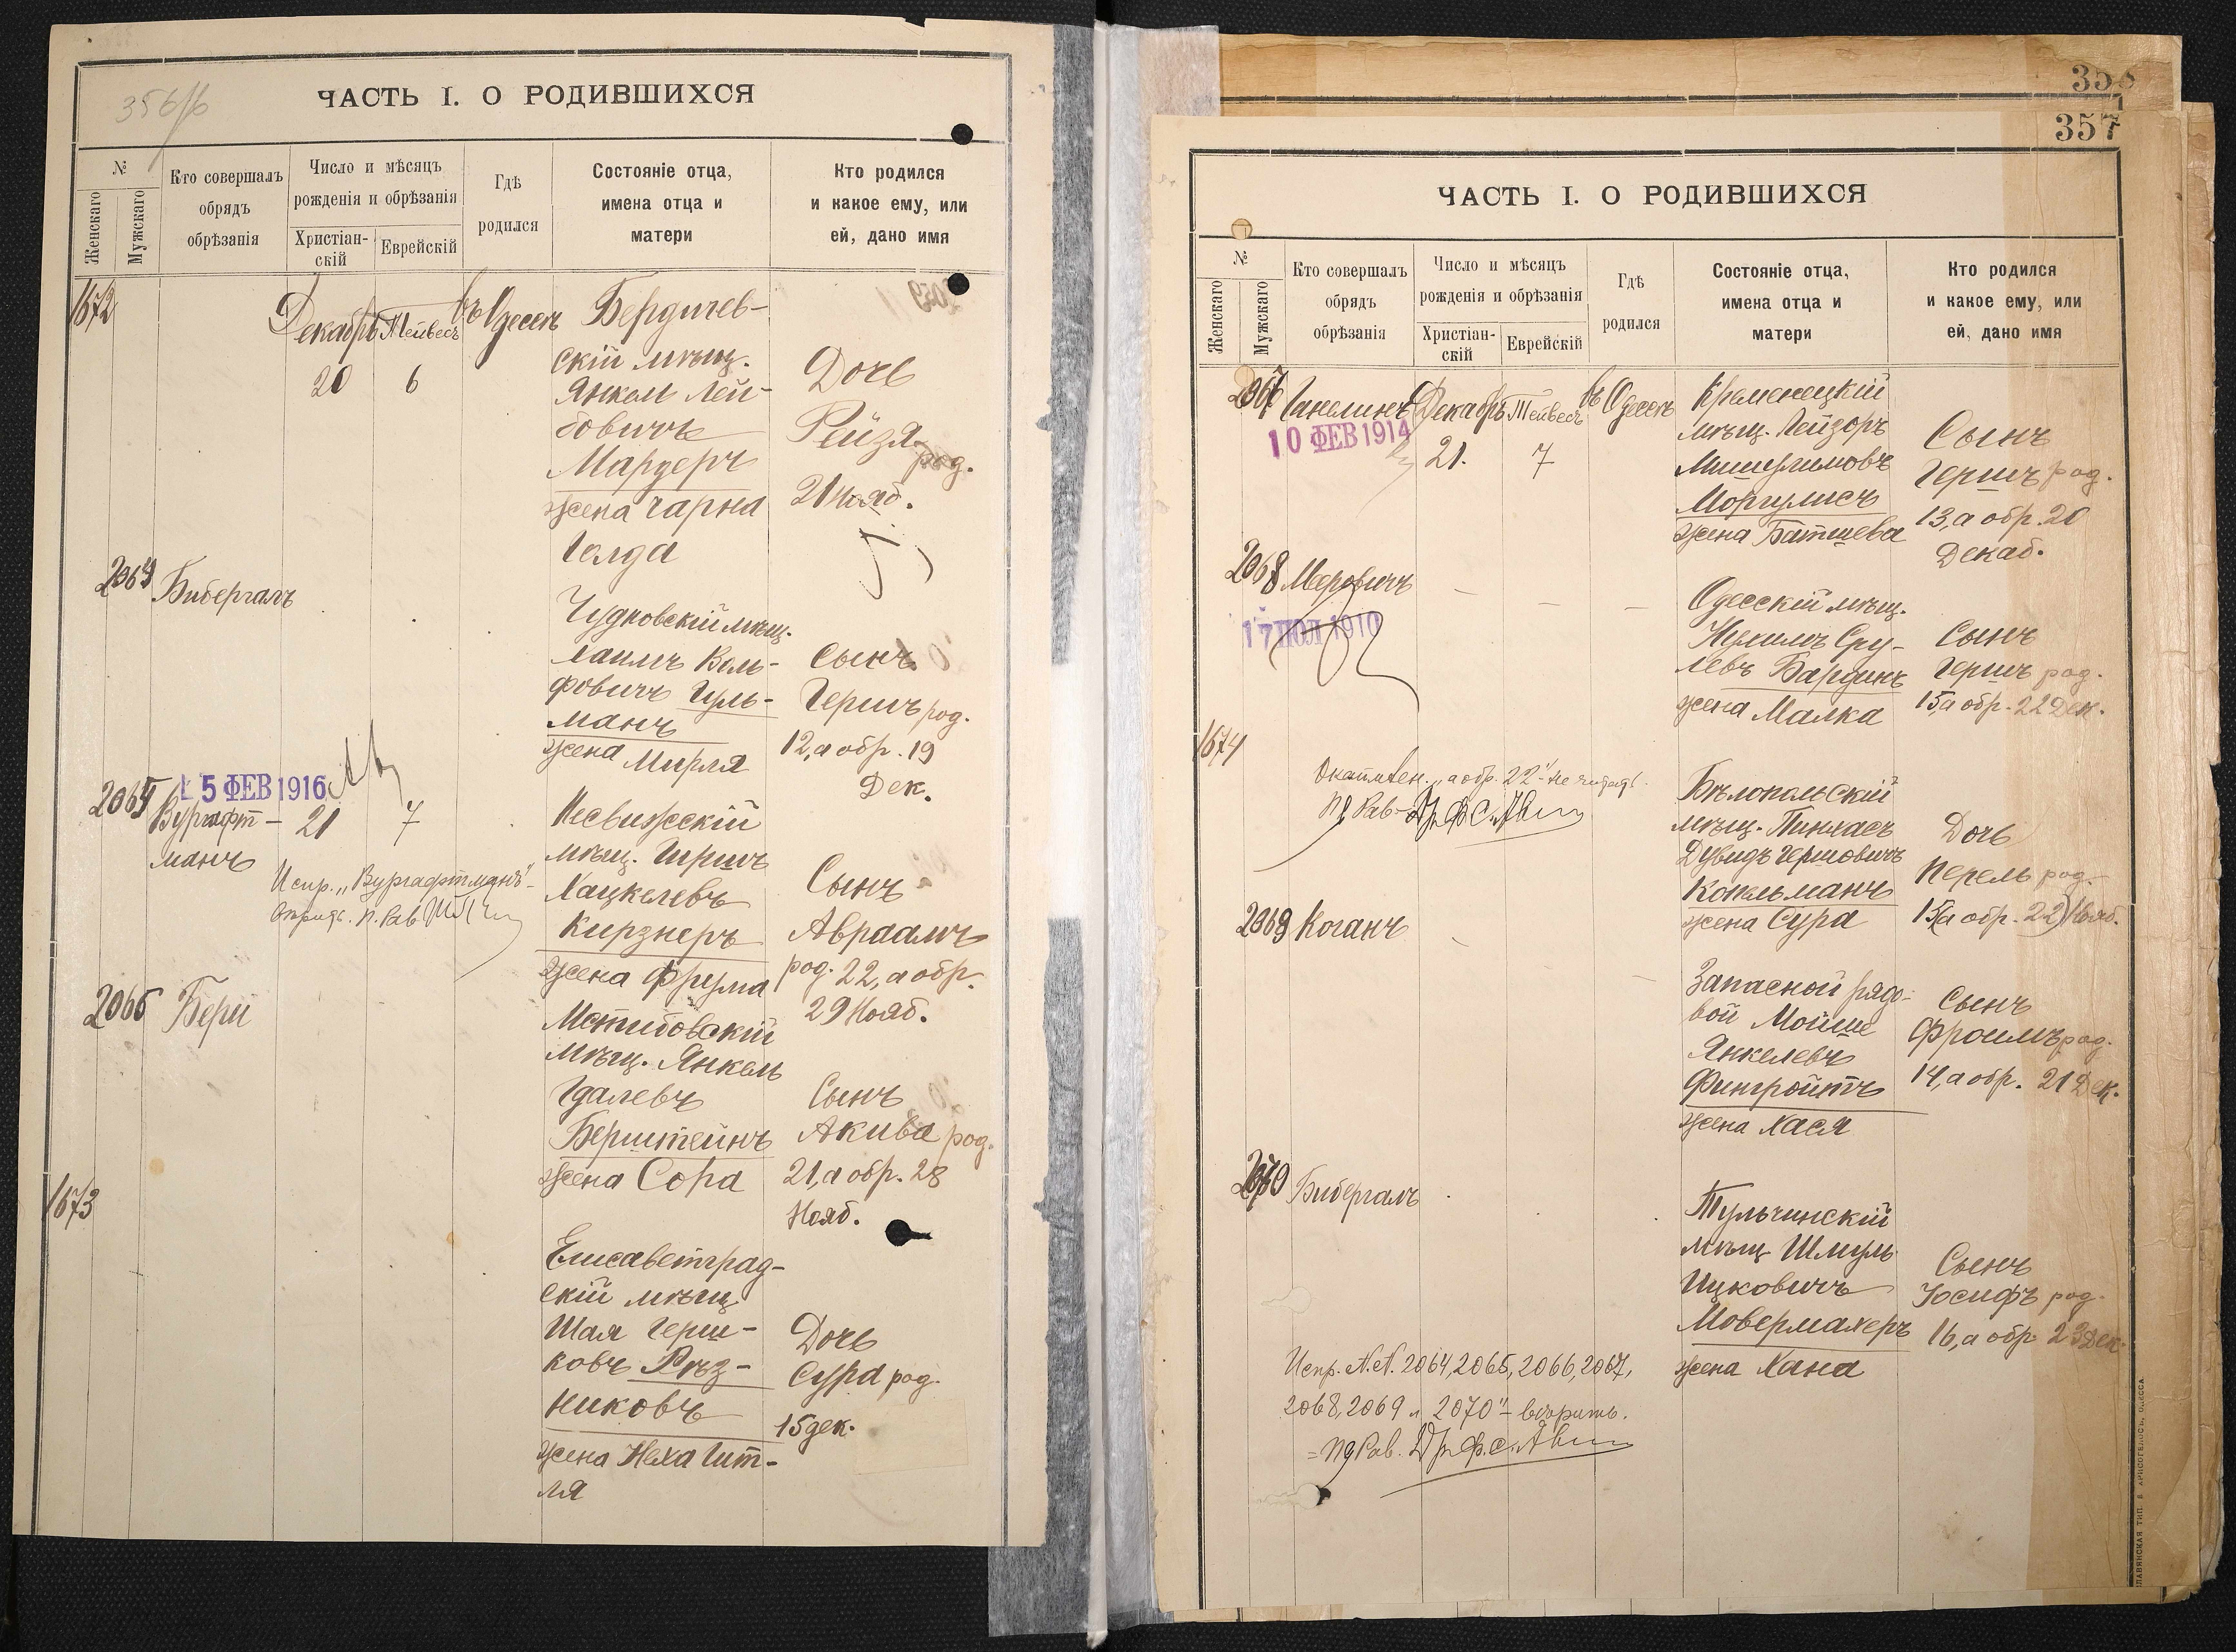 356/б
ЧАСТЬ I. О РОДИВШИХСЯ
№
Женскаго
Мужскаго
Кто совершалъ
обрядъ
обрѣзанія
Число и мѣсяцъ
рожденія и обрѣзанія
Христіан-
скій
Еврейскій
Гдѣ
родился
Состояніе отца,
имена отца и
матери
Кто родился
и какое ему, или
ей, дано имя
1672
Декабрь Тейвесъ въ Одессѣ
20 6
Бердичев-
скій мѣщ.
Янкель Лей-
бовичъ
Мардеръ
жена Чарна
Голда
Дочь
Рейзя
род.
21 Нояб.
2064 Бибергалъ
Чудновскій мѣщ.
Хаимъ Воль-
фовичъ Гуль-
манъ
жена Мирля
Сынъ
Гершъ род.
12, а обр. 19
Дек.
15 ФЕВ 1916
2065 Вургафт-
манъ
21 7
Испр. „Вургафтманъ"
П. Рав
Несвижскій
мѣщ. Гиршъ
Хацкелевъ
Кирзнеръ
жена Фрума
Сынъ
Авраамъ
род. 22, а обр.
29 Нояб.
2066 Бери
Мстибовскій
мѣщ. Янкель
Удалевъ
Берштейнъ
жена Сора
Сынъ
Акива род.
21, а обр. 28
Нояб.
1673
Елисаветград-
скій мѣщ.
Шая Герш-
ковъ Рѣз-
никовъ
жена Неха Гит-
ля
Дочь
Сура род.
15 дек.
358
357
ЧАСТЬ I. О РОДИВШИХСЯ
№
Женскаго
Мужскаго
Кто совершалъ
обрядъ
обрѣзанія
Число и мѣсяцъ
рожденія и обрѣзанія
Христіан-
скій
Еврейскій
Гдѣ
родился
Состояніе отца,
имена отца и
матери
Кто родился
и какое ему, или
ей, дано имя
2067 Ганелинъ Декабрь Тейвесъ въ Одессѣ
10 ФЕВ 1914
21. 7
Кременецкій
мѣщ. Лейзоръ
Мишулимовъ
Моргулисъ
жена Батшева
Сынъ
Гершъ род.
13, а обр. 20
Декаб.
2068 Меровичъ
17 ИЮЛ 1910
Одесскій мѣщ.
Нухимъ Сру-
левъ Бардинъ
жена Малка
Сынъ
Гершъ род.
15, а обр. 22 Дек.
1674
„а обр. 22" не читать.
Рав. Др. Ф. С.
Бѣлопольскій
мѣщ. Пинхасъ
Дувидъ Гершовичъ
Копельманъ
жена Сура
Дочь
Перель род.
15 (а обр. 22) Нояб.
2069 Коганъ
Запасной рядо-
вой Мойше
Янкелевъ
Фингройтъ
жена Хася
Сынъ
Фроимъ род.
14, а обр. 21 Дек.
2070 Бибергалъ
Тульчинскій
мѣщ. Шмуль
Ицковичъ
Мовермахеръ
жена Хана
Сынъ
Іосифъ род.
16, а обр. 23 Дек.
Испр. N.N. 2064, 2065, 2066, 2067,
2068, 2069 и 2070" - вѣрить.
Рав. Др. Ф. С.
СЛАВЯНСКАЯ ТИП. Е. ХРИСОГЕЛОСЪ, ОДЕССА